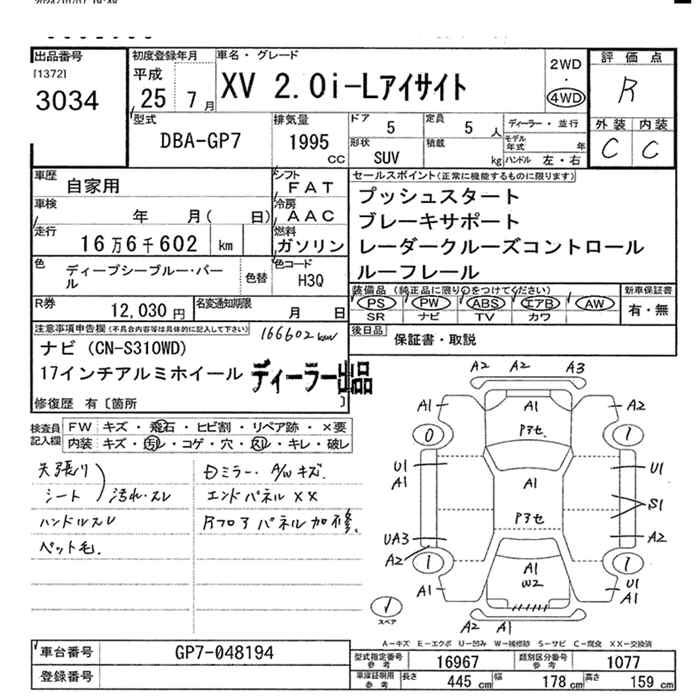 出品番号
[1372]
3034
初度登録年月
平成
25 7月
車名・グレード
XV 2.0i-Lアイサイト
2WD
・
4WD
評価点
R
外装 内装
C C
型式
DBA-GP7
排気量
1995
CC
ドア
5
定員
5 人
形状
SUV
積載
kg
ディーラー・並行
モデル年式 年
ハンドル 左・右
車歴
自家用
シフト
FAT
車検
年 月( 日)
冷房
AAC
走行
16万6千602 km
燃料
ガソリン
色
ディープシーブルー・パール
色替
色コード
H3Q
セールスポイント(正常に機能するものに限ります)
プッシュスタート
ブレーキサポート
レーダークルーズコントロール
ルーフレール
装備品 (純正品に限り○をつけてください)
PS PW ABS エアB AW
SR ナビ TV カワ
新車保証書
有・無
R券
12,030 円
名変通知期限
月 日
後日品
保証書・取説
注意事項申告欄(不具合内容等は具体的に記入して下さい)
166602km
ナビ (CN-S310WD)
17インチアルミホイール
ディーラー出品
修復歴 有〔箇所 〕
検査員記入欄
FW キズ・飛石・ヒビ割・リペア跡・×要
内装 キズ・汚れ・コゲ・穴・スレ・キレ・破レ
天張り
シート
汚れ・スレ
ハンドルスレ
ペット毛.
Dミラー・A/Wキズ.
エンドパネル××
Fフロアパネル加修.
A2 A2 A3
A1 A1 A2
0 Pアセ. 1
U1 U1
A1 A1
S1
Pアセ
UA3 A2
A2
1 A1 1
A1 W2 U1
A1
A2 A1
スペア
A-キズ E-エクボ U-凹み W-補修跡 S-サビ C-腐食 XX-交換済
車台番号
GP7-048194
登録番号
型式指定番号
参考
16967
類別区分番号
参考
1077
車庫証明用
参考
長さ 445 cm 幅 178 cm 高さ 159 cm